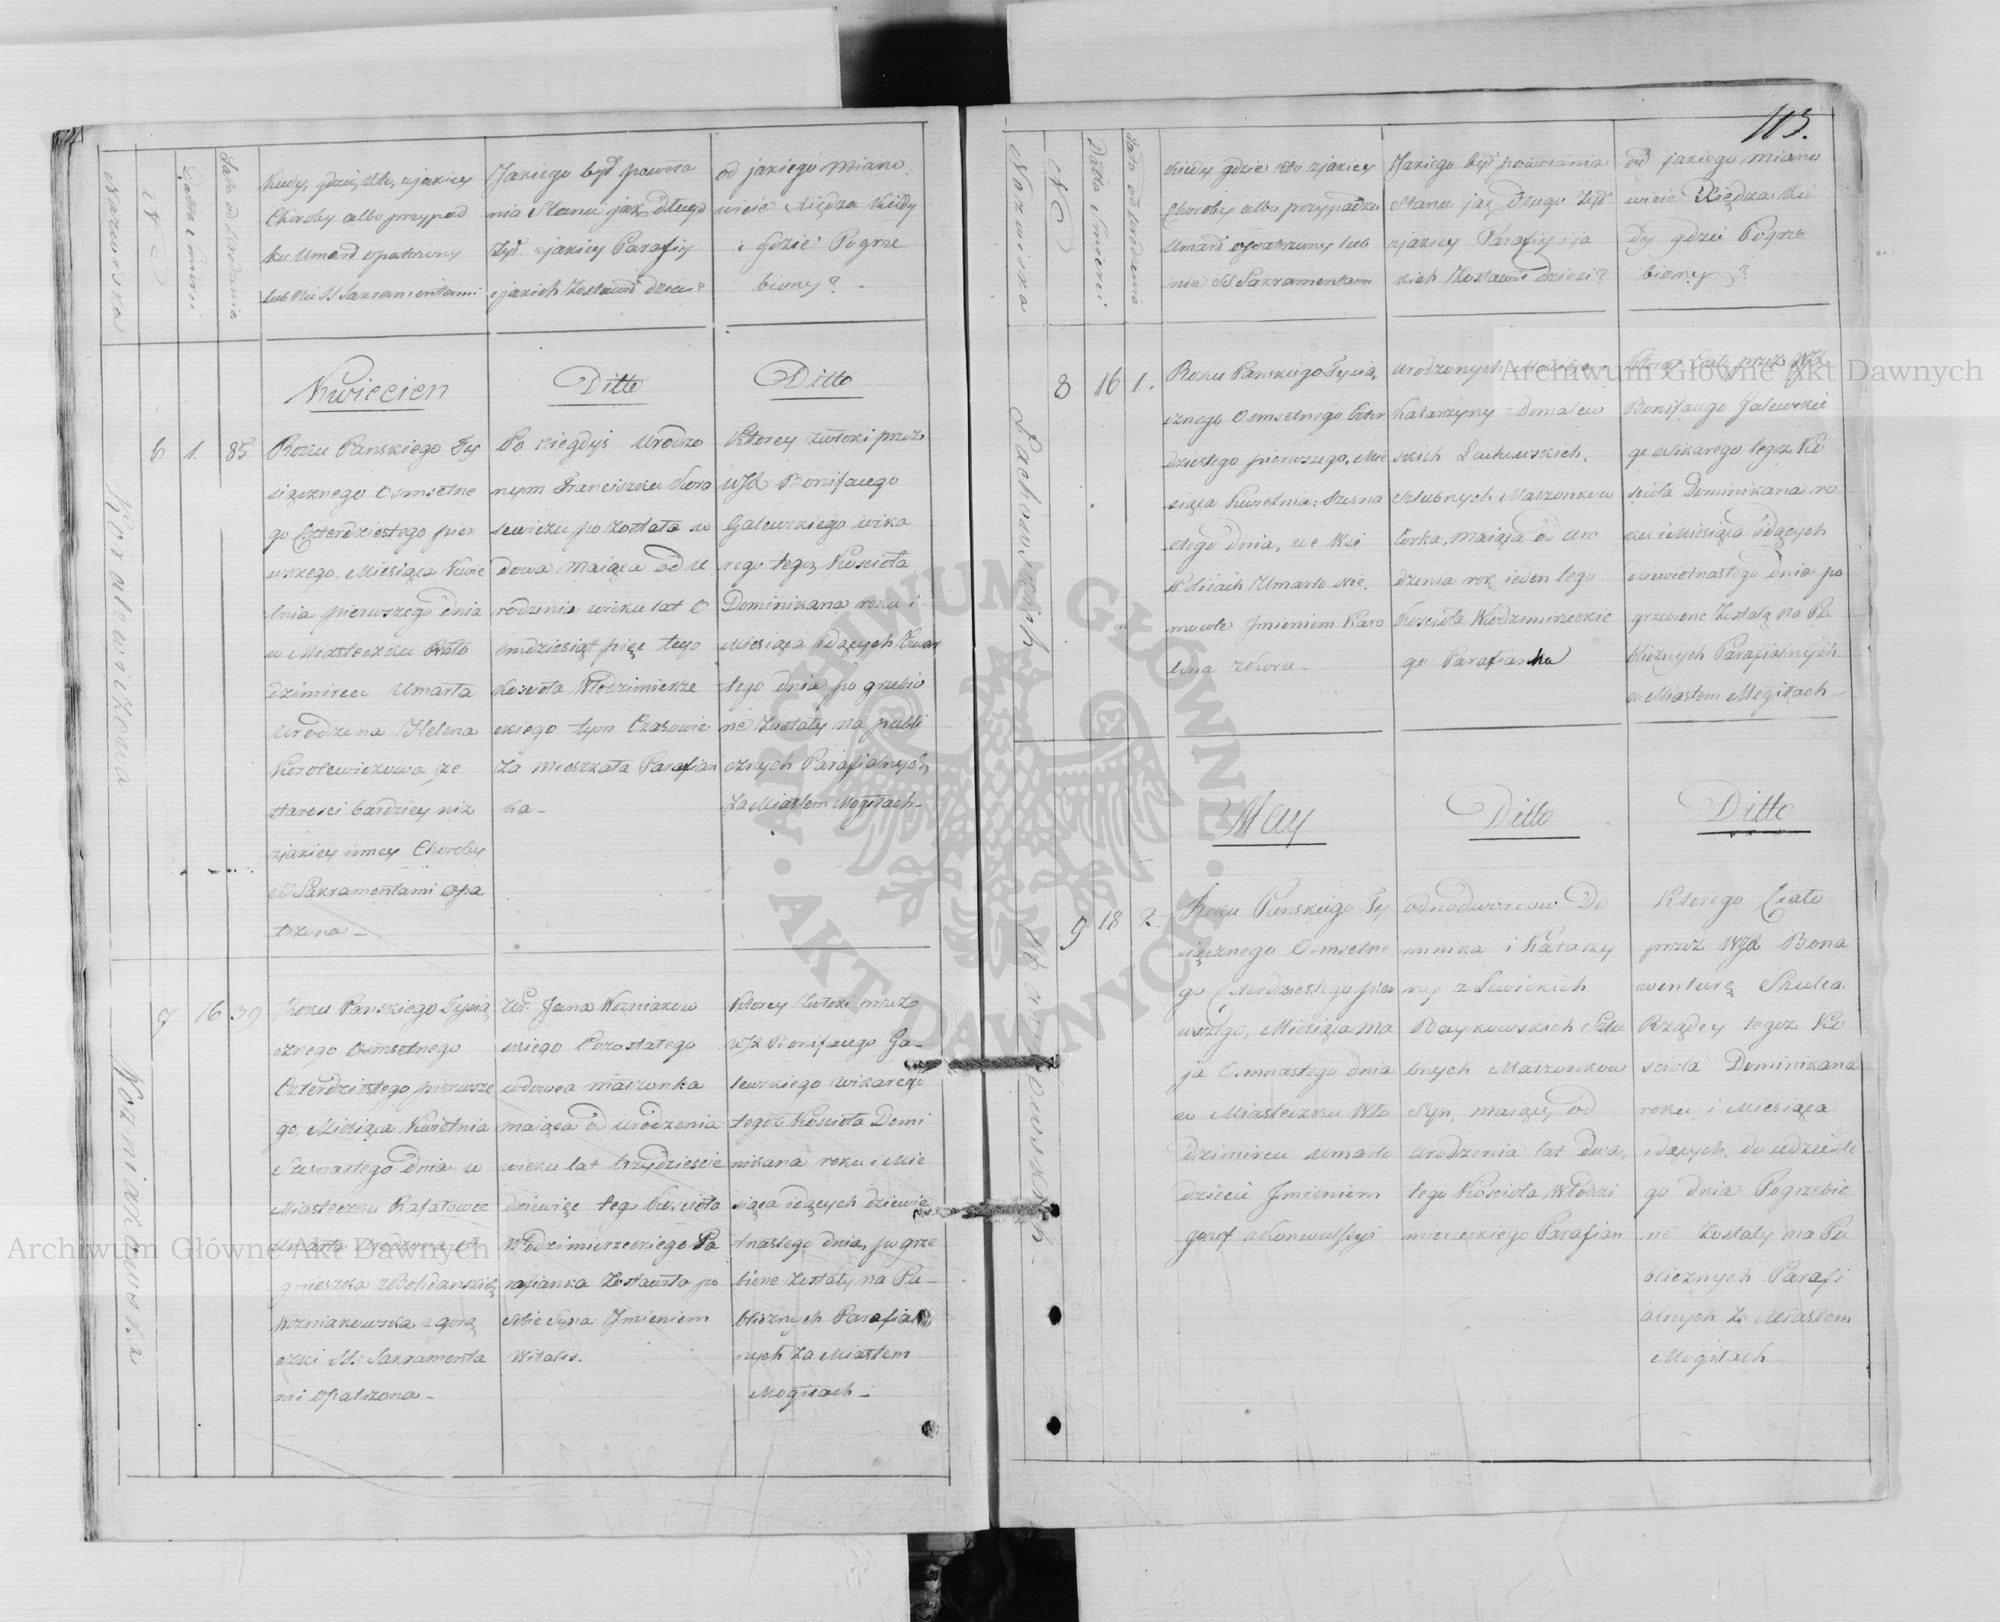 Nazwiska
N
Datta Smierci
Lata od Urodzenia
Kiedy, gdzie, kto, z jakiey
Choroby albo przypad
ku Umarł opatrzony
lub nie SS Sakramentami
Jakiego był powoła
nia Stanu jak długo
żył z jakiey Parafij
i jakich zostawił dzieci?
od jakiego miano
wicie Xiędza kiedy
i gdzie Pogrze
biony?
Kwiecien
Ditto
Ditto
Korolewiczowa
6
1.
85
Roku Panskiego Ty
siącznego Osmsetne
go Czterdziestego pier
wszego, Miesiąca Kwie
tnia pierwszego dnia
w Miasteczku Wło
dzimircu Umarła
Urodzona Helena
Korolewiczowa ze
starosci bardziey niz
z jakiey inney Choroby
SS Sakramentami opa
trzona
Po niegdys Urodzo
nym Franciszku Koro
lewiczu pozostała w
dowa maiąca od u
rodzenia wieku lat o
smdziesiąt pięc tego
Koscioła Włodzimierze
ckiego tym Czasowie
za mieszkała Parafian
ka
Ktorey zwłoki przez
WJX Bonifacego
Galewskiego wika
rego tegoż Koscioła
Dominikana roku i
Miesiąca idących Czwar
tego dnia po grzebio
ne zostały na publi
cznych Parafialnych
za Miastem Mogiłach
Wozniakowska
7
16
39
Roku Panskiego Tysią
cznego Osmsetnego
Czterdziestego pierwsze
go, Miesiąca Kwietnia
Szesnastego dnia w
Miasteczku Rafałowce
Umarła Urodzona A
gnieszka z Bohdanskich
Wozniakowska z gorą
czki SS. Sakramenta
mi Opatrzona
Ur. Jana Wozniakow
skiego Pozostałego
wdowca małzonka
maiąca od urodzenia
wieku lat trzydziescie
dziewięc teg Koscioła
Włodzimierzeckiego Pa
rafianka zostawiła po
sobie Syna Jmieniem
Witalis.
Ktorey zwłoki przez
WJX Bonifacego Ga
lewskiego wikarego
tegoż Koscioła Domi
nikana roku i Mie
siąca idących dziewię
tnastego dnia, pogrze
bione zostały na Pu
blicznych Parafial
nych za Miastem
Mogiłach
113.
Nazwiska
N
Datta Smierci
Lata od Urodzenia
Kiedy gdzie kto z jakiey
Choroby albo przypadku
Umarł opatrzony lub
nie SS Sakramentami
Jakiego był powołania
Stanu jak długo żył
z jakiey Parafij i ja
kich zostawił dzieci?
od jakiego miano
wicie Xiędza kie
dy gdzie Pogrze
biony?
Lachowskich
8
16
1.
Roku Panskiego Tysią
cznego Osmsetnego Czter
dziestego pierwszego, Mie
siąca Kwietnia Szesna
stego dnia, we Wsi
Umarło nie
mowle Jmieniem Karo
lina z Koru
Urodzonych Macieja i
Katarzyny z Domalew
skich Lachowskich,
szlubnych Małzonkow
Corka, maiąca od Uro
dzenia rok ieden tego
Koscioła Włodzimirzeckie
go Parafianka
Ktorey Ciało przez WJX
Bonifacego Galewskie
go Wikarego tegoz Ko
scioła Dominikana ro
ku i Miesiąca idących
dziewietnastego dnia po
grzebione zostało na Pu
blicznych Parafialnych
za Miastem Mogiłach
May
Ditto
Ditto
Baykowskich
9
18
2.
Roku Panskiego Ty
siącznego Osmsetne
go Czterdziestego pier
wszego, Miesiąca Ma
ja Osmnastego dnia
w Miasteczku Wło
dzimircu Umarło
dziecie Jmieniem
Jozef z Konwulsyi
odnodworcow Do
minika i Katarzy
ny z Lwickich
Baykowskich Szlu
bnych Małzonkow
Syn, maiący od
Urodzenia lat dwa,
tego Koscioła Włodzi
mirzeckiego Parafian
Ktorego Ciało
przez WJX Bona
wenturę Szulca
Rządcy tegoz Ko
scioła Dominikana
roku i Miesiąca
idących, dwudzieste
go dnia Pogrzebio
ne zostały na Pu
blicznych Parafi
alnych za Miastem
Mogiłach
Archiwum Główne Akt Dawnych
Archiwum Główne Akt Dawnych
ARCHIWUM GŁÓWNE · AKT DAWNYCH ·